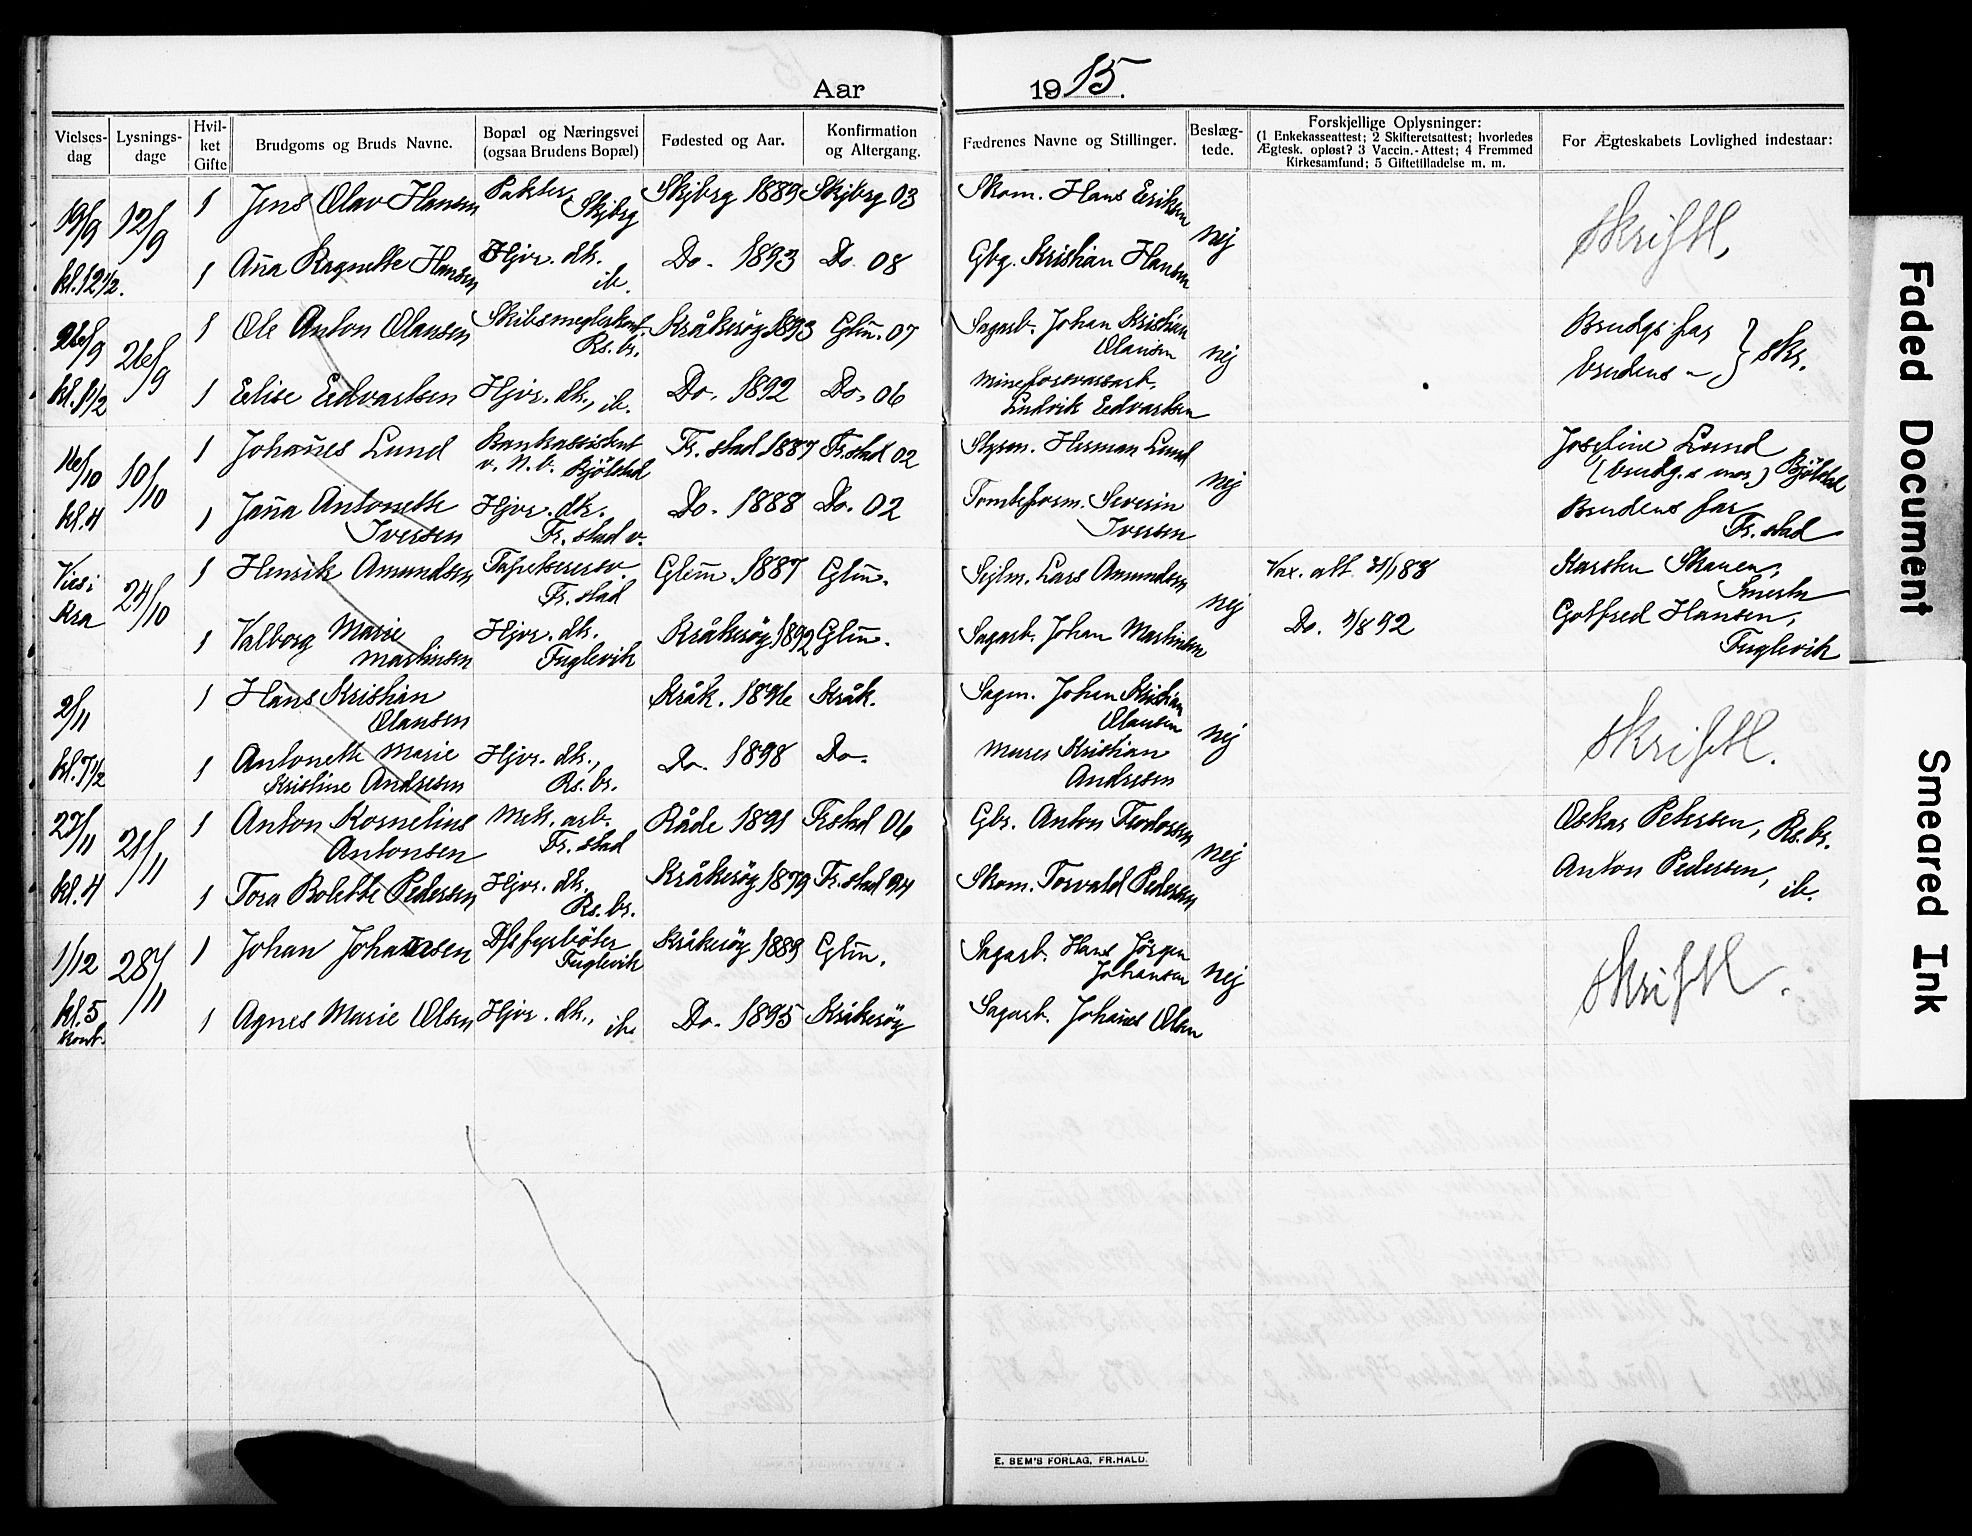 Aar 1915.
Vielses-dag
Lysnings-dage
Hvil-ket Gifte
Brudgoms og Bruds Navne.
Bopæl og Næringsvei (ogsaa Brudens Bopæl)
Fødested og Aar.
Konfirmation og Altergang.
Fædrenes Navne og Stillinger.
Beslæg-tede.
Forskjellige Oplysninger:
(1 Enkekasseattest; 2 Skifteretsattest; hvorledes
Ægtesk. opløst? 3 Vaccin.-Attest; 4 Fremmed
Kirkesamfund; 5 Giftetilladelse m. m.
For Ægteskabets Lovlighed indestaar:
19/9 12/9 1 Jens Olav Hansen Pakker, Skjberg Skjberg 1889 Skjberg 03 Skom. Hans Eriksen nej skriftl.
kl. 12 1/2. 1 Aña Ragnette Hansen Hjvr. dk. ib. Do. 1893 Do. 08 Gbg. Kristian Hansen
26/9 26/9 1 Ole Anton Olausen Skibsmeglerkont. Rs. br. Kråkerøy 1893 Glm̄. 07 Sagarb. Johan Kristian Olausen nej Brudgs far } skr.
kl. 1 1/2 1 Elise Edvartsen Hjvr. dk., ib. Do. 1892 Do. 06 Mineforsvarsarb. Ludvik Edvartsen brudens –
16/10 10/10 1 Johañes Lund Bankassistent v. N. b. Bjölstad Fr. stad 1887 Fr. stad 02 Styrm. Herman Lund nej Josefine Lund (brudg.s mor) Bjölstad
kl. 4 1 Jaña Antonette Iversen Hjvr. dk. Fr. stad v. Do. 1888 Do. 02 Tomteform. Severin Iversen Brudens far Fr. stad
Viet i Kra 24/10 1 Henrik Amundsen Tapetserersv. Fr. stad Glem̄ 1887 Glm̄. Sejlm. Lars Amundsen nej Vax. att. 31/1 88 Karsten Skauen, Smertu
1 Valborg Marie Martinsen Hjvr. dk. Fuglevik Kråkerøy 1892 Glm̄. Sagarb. Johan Martinsen Do. 3/8 92 Gotfred Hansen, Fuglevik
2/11 1 Hans Kristian Olausen Kråk. 1896 Kråk. Sagm. Johan Kristian Olausen nej skriftl.
kl. 7 1/2 1 Antonette Marie Kristine Andresen Hjvr. dk., Rs. br. Do. 1898 Do. Murer Kristian Andresen
27/11 21/11 1 Anton Kornelius Antonsen Mek. arb. Fr. stad Råde 1891 Frstad 06 Gbr. Anton Teodorsen nej Oskar Petersen, Rs. br.
kl. 4 1 Tora Bolette Pedersen Hjvr. dk. Rs. br. Kråkerøy 1879 Fr. stad 94 Skom. Torvald Pedersen Anton Pedersen, ib.
1/12 28/11 1 Johan Johansen D/s fyrbøter Fuglevik Kråkerøy 1889 Glm̄. Sagarb. Hans Jörgen Johansen nej skriftl.
kl. 5 kont. 1 Agnes Marie Olsen Hjvr. dk., ib. Do. 1895 Kråkerøy Sagarb. Johañes Olsen
E. SEM'S FORLAG, FR.HALD.
Faded Document
Smeared Ink